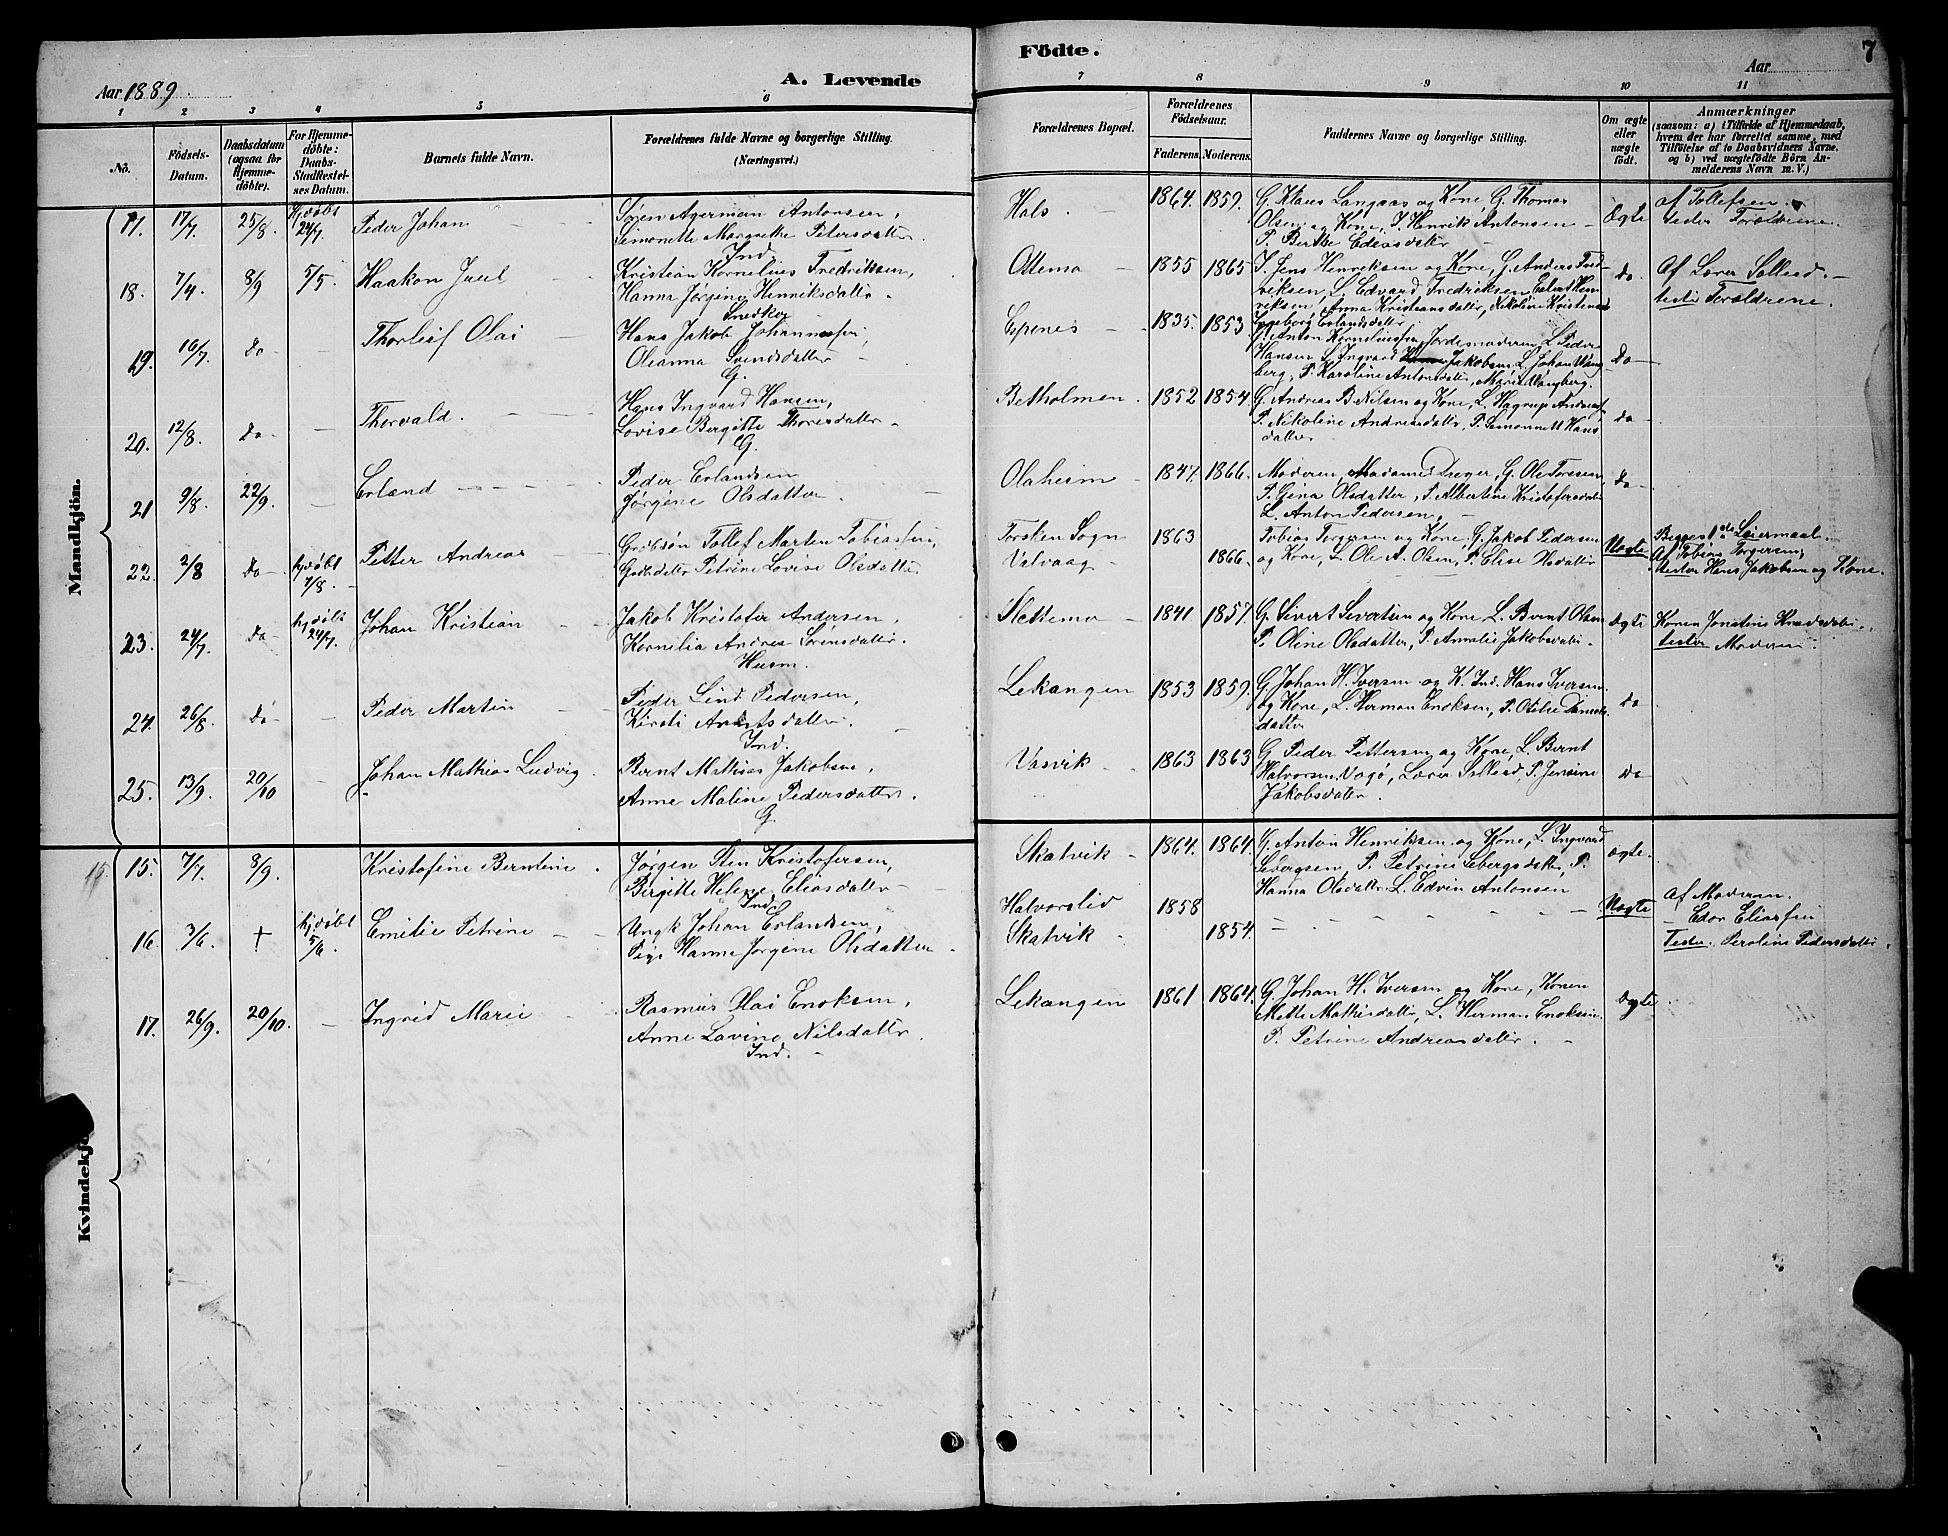 Födte.
7
A. Levende
Aar 1889.
Aar
1 2 3 4 5 6 7 8 9 10 11
No.
Födsels-Datum.
Daabsdatum (ogsaa for Hjemme-döbte).
For Hjemme-döbte: Daabs-Stadfestelses Datum.
Barnets fulde Navn.
Forældrenes fulde Navne og borgerlige Stilling.
(Næringsvei.)
Forældrenes Bopæl.
Forældrenes Födselsaar.
Faderens. Moderens.
Faddernes Navne og borgerlige Stilling.
Om ægte eller uægte født.
Anmærkninger
(saasom: a) i Tilfælde af Hjemmedaab, hvem der har forrettet samme, med Tilföielse af to Daabsvidners Navne. og b) ved uægtefödte Börn Anmelderens Navn m. V.)
Mandkjön.
17. 17/7 25/8 hjdøbt 24/7 Peder Johan
Søren Agerman Antonsen,
Simonette Margrethe Petersdatter
Ind.
Hals. 1864. 1859.
G. Klaus Langaas og Kone, G. Thomas
Olsen og Kone, I. Henrik Antonsen
P. Berthe Edensdatter
Ægte
af Tollefsen.
tester Forældrene.
18. 7/4 8/9 5/5 Haakon Juul
Kristian Kornelius Fredriksen,
Hanna Jørgine Henriksdatter.
Snedker
Ottemo 1855 1865
I. Jens Henriksen og Kone, G. Anders Fred-
riksen, L. Edvard Fredriksen, Edvart Hen-
riksen, Anna Kristiansdatter, Nikoline Kristens
Ingeborg Erlandsdatter.
Do.
Af Lærer Solleed.
testi Forældrene.
19. 16/7. Do Thorleif Olai
Hans Jakob Johannesen,
Oleanna Svendsdatter
G.
Espenes 1835. 1853
G. Anton Korneliussen, Jordemoderen, L. Peder
Hansen, L. Ingvard Jakobsen, L. Johan Wang-
berg, P. Karoline Antonsdatter, Marie Wangberg.
Do
20. 12/8. Do Thorvald.
Hans Ingvard Hansen,
Lovise Bergitte Thoresdatter
G.
Betholmen. 1852 1854.
G. Andreas B. Nilsen og Kone, L. Hagrup Andreas.
P. Nikoline Andreasdatter, P. Simonnett Hans
datter.
do
21 9/8. 22/9. Erland
Peder Erlandsen
Jørgine Olsdatter.
Olaheim 1847. 1866.
Moderen, Madame Dreyer, G. Ole Toresen
P. Gina Olsdatter, P. Albertine Kristofersdatter
L. Anton Pedersen,
do
22. 2/8 Do hjdøbt 7/8. Petter Andreas
Grdbsøn Tollef Marten Tobiassen,
Grdbsdatter Petrine Lovise Olsdatter.
Torsken Sogn 1863
Valvaag 1866.
Tobias Torgersen og Kone, G. Jakob Pedersen
og Kone, L. Ole A. Olsen, P. Elise Olsdatter
Uægte
Begges 1ste Leiermaal.
Af Tobias Torgersen,
tester Hans Jakobsen og Kone.
23. 24/7 Do hjdøbt 24/7. Johan Kristian
Jakob Kristofer Andersen,
Kornelia Andrea Sørensdatter.
Husm.
Slettemo 1841 1857.
G. Sivert Sivertsen og Kone, L. Bernt Olsen
P. Oline Olsdatter, P. Amalie Jakobsdatter.
Ægte
Konen Jonetine Knudsdatter.
tester Moderen.
24. 26/8. Do Peder Martin
Peder Lind Pedersen,
Kirsti Arntsdatter.
Ind.
Lekangen 1853 1859.
G. Johan H. Iversen og K. Ind. Hans Iversen
og Kone, L. Herman Enoksen, P. Otilie Daniels
datter
Do
25. 13/9. 20/10 Johan Mathias Ludvig.
Bernt Mathias Jakobsen,
Anne Maline Pedersdatter.
G.
Vasvik 1863 1863
G. Peder Pettersen og Kone, L. Bernt
Halvorsen Vagø, Lærer Solleed, P. Jensine
Jakobsdatter.
Do
Kvindekj
15. 7/7. 8/9. Kristofine Berntine.
Jørgen Stin Kristofersen,
Birgitte Helene Eliasdatter
Ind.
Skatvik 1864. 1864.
G. Anton Henriksen og Kone, L. Ingvard
Sebergsen, P. Petrine Sebergsdatter, P.
Hanna Olsdatter, L. Edvin Antonsen
Ægte.
16. 3/6. † hjdøbt 5/6 Emilie Petrine
Ungk Johan Erlandsen,
Pige Hanne Jørgene Olsdatter
Halvorslid 1858
Skatvik 1854.
Uægte
Af Moderen.
Edor Eliassen
Tester. Peroline Pedersdatter.
17. 26/9. 20/10. Ingrid Marie
Rasmus Olai Enoksen,
Anne Lovine Nilsdatter.
Ind.
Lekangen 1861 1864.
G. Johan H. Iversen og Kone, Konen
Mette Mathisdatter, L. Herman Enoksen
P. Petrine Andreasdatter.
Ægte